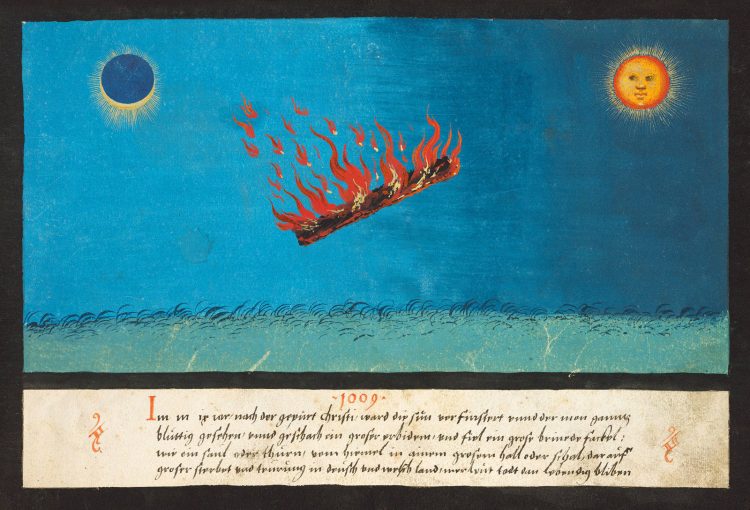 1009
Im m ix iar nach der gepürt christi ward die sün verfinstert vnnd der mon ganntz
blüttig gesehen vnnd geschach ein groser erbidem vnd fiel ein grose brinede fackel
wie ein saul oder thurn vom himel in ainem grosem hall oder schal, dar auf
groser sterbet vnd teürüng in deüsch vnd welsch land, mer leüt todt dan lebendig bliben